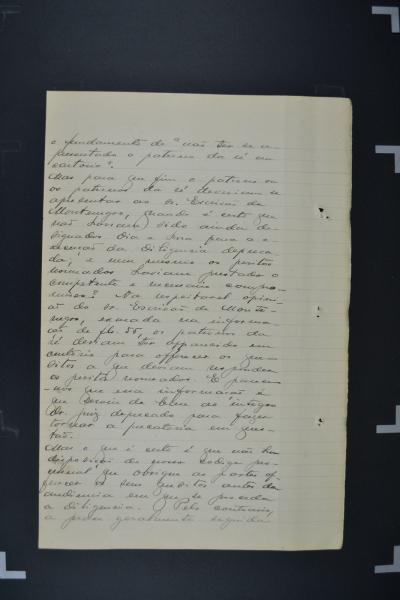 o fundamento de "não ter se a-
presentado o patrono da ré em
cartorio".
Mas para que fim o patrono ou
os patronos da ré deveriam se
apresentar ao Sr. Escrivão de
Montenegro, quando é certo que
não haviam sido ainda de-
signados dia e hora para a e-
xecução da diligencia depreca-
da, e nem mesmo os peritos
nomeados haviam prestado o
competente e necessario compro-
misso? Na respeitavel opini-
ão do sr. Escrivão de Monte-
negro, exarada na informa-
ção de fls. 55, os patronos da
ré deviam ter apparecido em
cartorio para offerecer os que-
sitos a que deviam responder
os peritos nomeados. E parece-
-nos que essa informação é
que serviu de base ao integro
Dr. Juiz deprecado para fazer
tornar a precatoria em ques-
tão.
Mas o que é certo é que não ha
disposição do nosso codigo pro-
cessual que obrigue as partes of-
ferecer os seus quesitos antes da
audiencia em que se proceda
a diligencia. Pelo contrario,
a praxe geralmente seguida